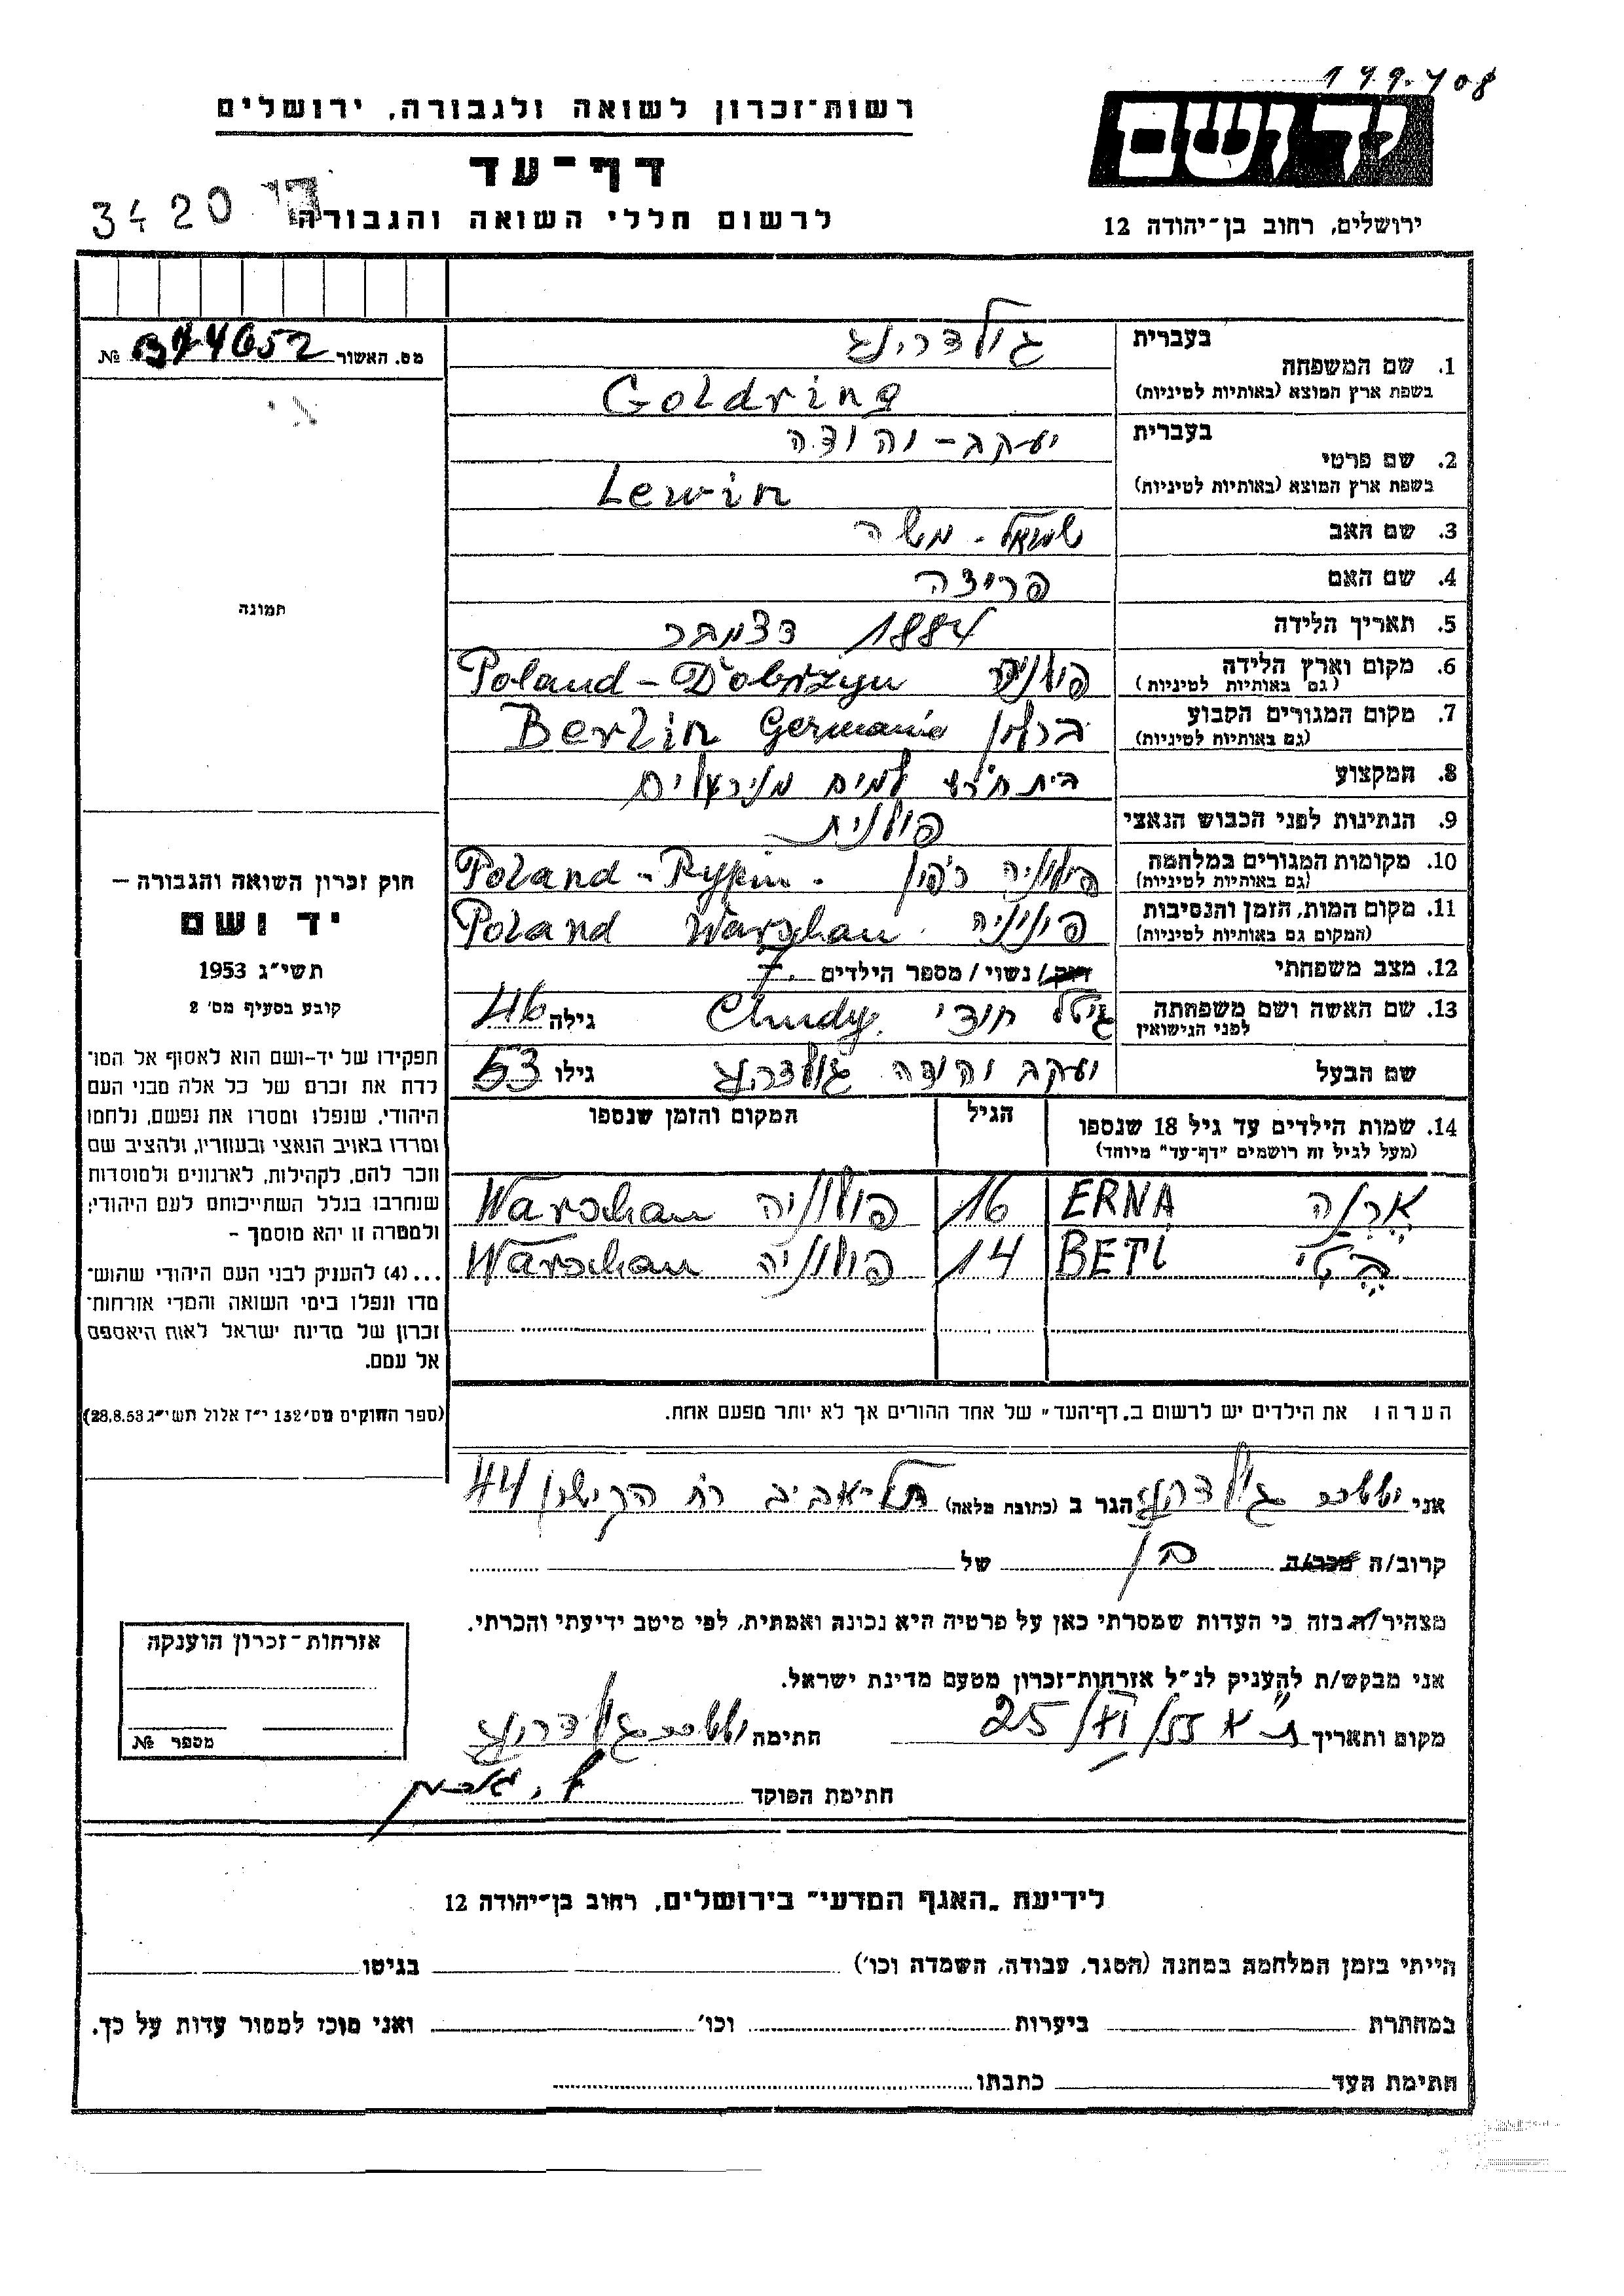 199408
רשות־זכרון לשואה ולגבורה, ירושלים
יד ושם
דף־עד
לרשום חללי השואה והגבורה
ירושלים, רחוב בן־יהודה 12
3420
מס. האשור № 374652
תמונה
1. שם המשפחה
בעברית גולדרינג
בשפת ארץ המוצא (באותיות לטיניות) Goldring
2. שם פרטי
בעברית יעקב-יהודה
בשפת ארץ המוצא (באותיות לטיניות) Lewin
3. שם האב שמואל - משה
4. שם האם פריצה
5. תאריך הלידה 1884 דצמבר
6. מקום וארץ הלידה (גם באותיות לטיניות) פולניה Poland - Dobrzyn
7. מקום המגורים הקבוע (גם באותיות לטיניות) ברלין Berlin Germania
8. המקצוע בית חרשת למים מינרליים
9. הנתינות לפני הכבוש הנאצי פולנית
10. מקומות המגורים במלחמה (גם באותיות לטיניות) פולניה ריפין Poland - Rypin.
11. מקום המות, הזמן והנסיבות (המקום גם באותיות לטיניות) פולניה Poland Warschau
12. מצב משפחתי רוק/ נשוי / מספר הילדים 7.
13. שם האשה ושם משפחתה לפני הנישואין גיטל חודי Chudy. גילה 46
שם הבעל יעקב יהודה גולדרינג גילו 53
14. שמות הילדים עד גיל 18 שנספו (מעל לגיל זה רושמים "דף־עד" מיוחד) הגיל המקום והזמן שנספו
ארנה ERNA 16 פולניה Warschau
בטי BETI 14 פולניה Warschau
הערה: את הילדים יש לרשום ב„דף־העד" של אחד ההורים אך לא יותר מפעם אחת.
חוק זכרון השואה והגבורה —
יד ושם
תשי״ג 1953
קובע בסעיף מס' 2
תפקידו של יד-ושם הוא לאסוף אל המו־
לדת את זכרם של כל אלה מבני העם
היהודי, שנפלו ומסרו את נפשם, נלחמו
ומרדו באויב הנאצי ובעוזריו, ולהציב שם
וזכר להם, לקהילות, לארגונים ולמוסדות
שנחרבו בגלל השתייכותם לעם היהודי;
ולמטרה זו יהא מוסמך -
...(4) להעניק לבני העם היהודי שהוש־
מדו ונפלו בימי השואה והמרי אזרחות־
זכרון של מדינת ישראל לאות היאספם
אל עמם.
(ספר החוקים מס' 132 י״ז אלול תשי״ג 28.8.53)
אני גולדרינג הגר ב (כתובת מלאה) תל-אביב רח הקישון 44
קרוב/ה מכר/ה בן של
מצהיר/ה בזה כי העדות שמסרתי כאן על פרטיה היא נכונה ואמתית, לפי מיטב ידיעתי והכרתי.
אני מבקש/ת להעניק לנ״ל אזרחות־זכרון מטעם מדינת ישראל.
מקום ותאריך ת״א 25/VI/55 חתימה גולדרינג
חתימת הפוקד
אזרחות־זכרון הוענקה
מספר №
לידיעת „האגף המדעי" בירושלים, רחוב בן־יהודה 12
הייתי בזמן המלחמה במחנה (הסגר, עבודה, השמדה וכו') בגיטו
במחתרת ביערות וכו' ואני מוכן למסור עדות על כך.
חתימת העד כתבתו